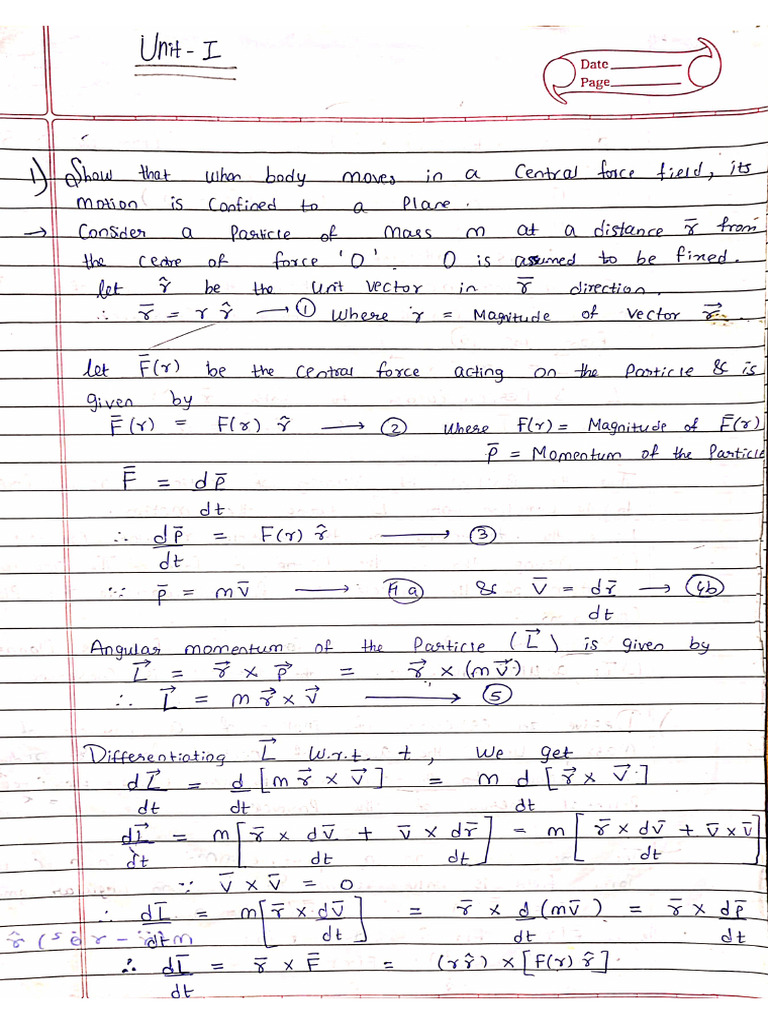 Unit - I
Date
Page
1) Show that when body moves in a central force field, its
motion is confined to a plane.
→ Consider a particle of mass m at a distance r̄ from
the cedre of force 'O'. O is assumed to be fixed.
let r̂ be the unit vector in r̄ direction.
∴ r̄ = r r̂ → ① where r = Magnitude of vector r⃗.
let F̄(r) be the central force acting on the particle & is
given by
F̄(r) = F(r) r̂ → ② where F(r) = Magnitude of F̄(r)
p̄ = Momentum of the Particle
F̄ = dp̄/dt
∴ dp̄/dt = F(r) r̂ → ③
∵ p̄ = mv̄ → 4a & v̄ = dr̄/dt → 4b
Angular momentum of the particle (L⃗) is given by
L⃗ = r⃗ × p⃗ = r⃗ × (mv⃗)
∴ L⃗ = m r⃗ × v⃗ → ⑤
Differentiating L⃗ w.r.t. t, we get
dL⃗/dt = d/dt [m r⃗ × v⃗] = m d/dt [r⃗ × v⃗]
dL⃗/dt = m[r̄ × dv̄/dt + v̄ × dr̄/dt] = m[r̄ × dv̄/dt + v̄ × v̄]
∵ v̄ × v̄ = 0
∴ dL̄/dt = m[r̄ × dv̄/dt] = r̄ × d/dt (mv̄) = r̄ × dp̄/dt
∴ dL̄/dt = r̄ × F̄ = (rr̂) × [F(r) r̂]